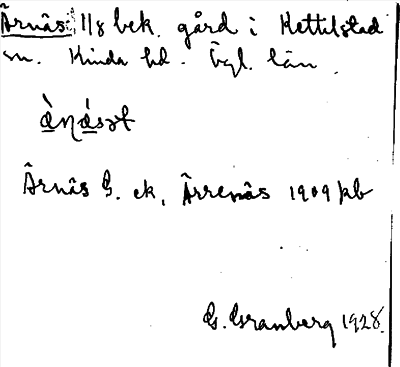 Ärnäs 1/8 bek. gård i Kettilstad
sn. Kinda hd. Ögl. län.
Ärnäs G. ek, Ärrenäs 1909 kb
G. Granberg 1928.